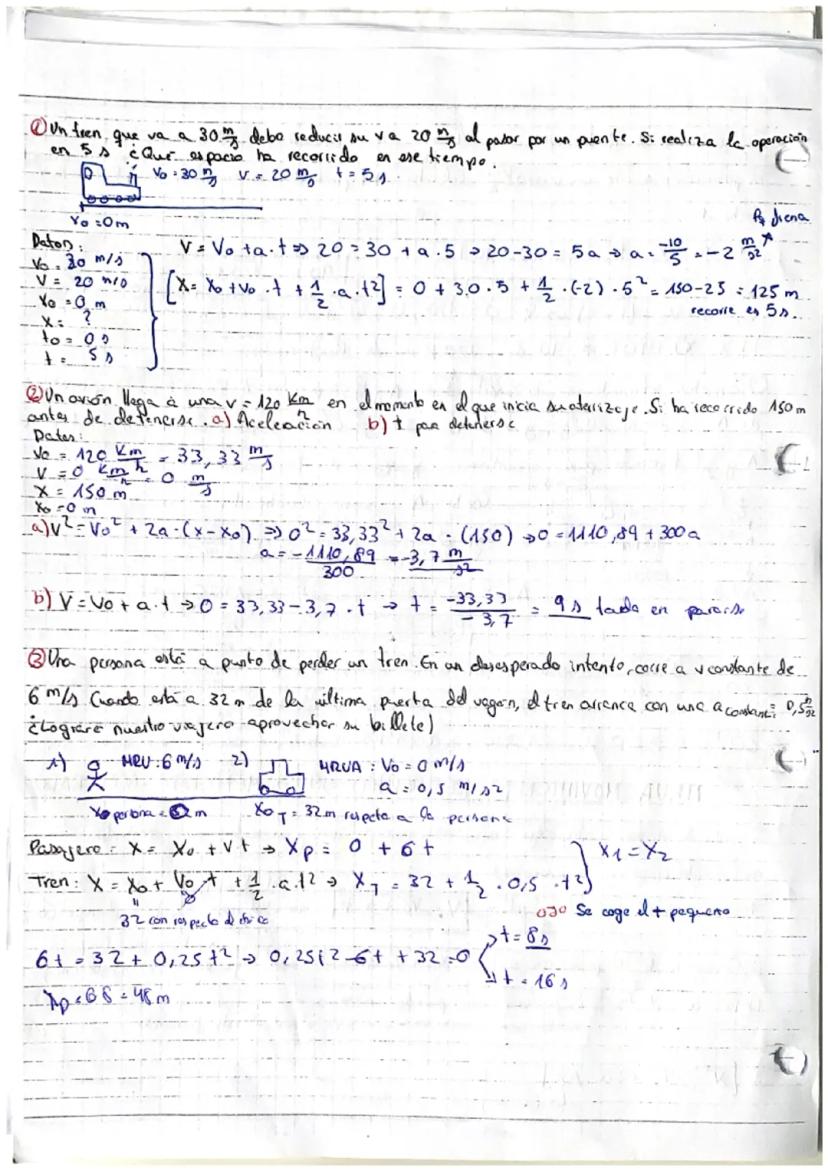 ① Un tren, que va a 30 m/s debe reducir su v a 20 m/s al pasar por un puente. Si realiza la operación
en 5 s ¿Que espacio ha recorrido en ese tiempo.
V₀ = 30 m/s V = 20 m/s t = 5 s
X₀ = 0m
Datos:
V₀ = 30 m/s
V = 20 m/s
X₀ = 0 m
X = ?
t₀ = 0 s
t = 5 s
frena
V = V₀ + a · t ⇒ 20 = 30 + a · 5 → 20 - 30 = 5a ⇒ a = -10/5 = -2 m/s²
[X = X₀ + V₀ · t + 1/2 · a · t²] = 0 + 30 · 5 + 1/2 · (-2) · 5² = 150 - 25 = 125 m
recorre es 5s.
② Un avión llega a una v = 120 Km/h en el momento en el que inicia su aterrizaje. Si ha recorrido 150 m
antes de detenerse. a) Aceleación b) t para detenerse
Datos:
V₀ = 120 Km/h = 33,33 m/s
V = 0 Km/h = 0 m/s
X = 150 m
X₀ = 0 m
a) V² = V₀² + 2a · (x - x₀) ⇒ 0² = 33,33² + 2a · (150) → 0 = 1110,89 + 300a
a = -1110,89/300 = -3,7 m/s²
b) V = V₀ + a · t → 0 = 33,33 - 3,7 · t → t = -33,33/-3,7 = 9 s tarda en pararse
③ Una persona está a punto de perder un tren. En un desesperado intento, corre a v constante de
6 m/s Cuando está a 32 m de la última puerta del vagón, el tren arranca con una a constante = 0,5 m/s²
¿Lograra nuestro viajero aprovechar su billete)
1) MRU: 6 m/s 2) MRUA: V₀ = 0 m/s
a = 0,5 m/s²
X₀ persona = 0 m X₀T = 32m respecto a la persona
Pasajero: X = X₀ + Vt → Xp = 0 + 6t
X1 = X2
Tren: X = X₀ + V₀ · t + 1/2 · a · t² → XT = 32 + 1/2 · 0,5 · t²
32 con respecto al
OJO Se coge el t pequeño
6t = 32 + 0,25t² → 0,25t² - 6t + 32 = 0
t = 8s
t = 16 s
Xp = 6·8 = 48 m